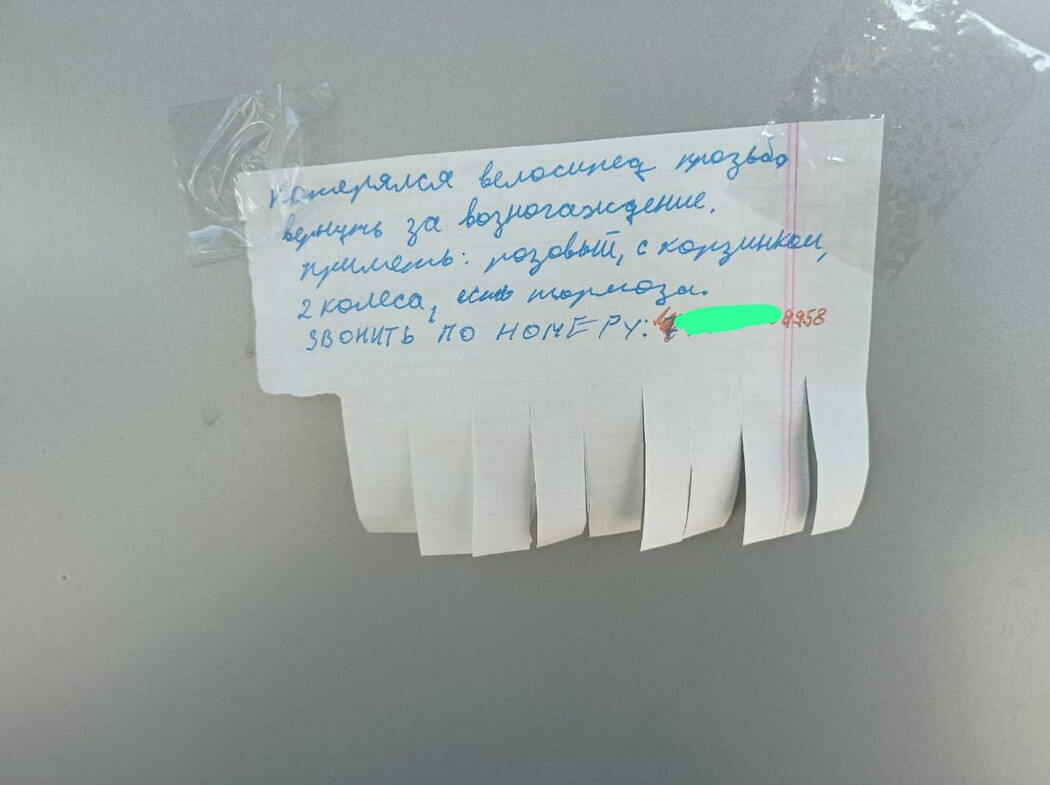 потерялся велосипед прозьба
вернуть за возногаждение.
приметь: розовый, с корзинкой,
2 колеса, есть тормоза.
ЗВОНИТЬ ПО НОМЕРУ: 8958